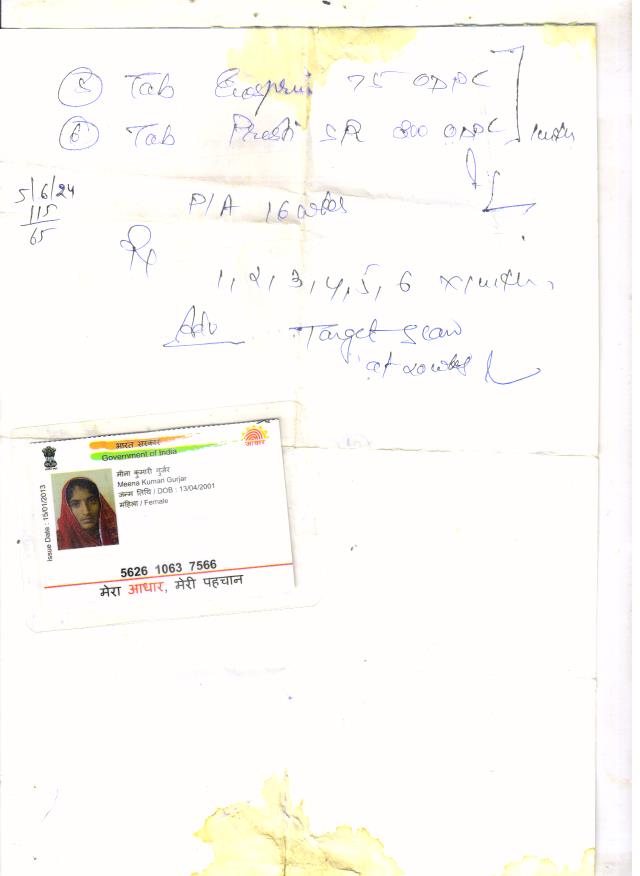 5 Tab Ecosprin 75 ODPC
6 Tab SR 200 ODPC
5/6/24
115
65
P/A 16 wks
Rx
1, 2, 3, 4, 5, 6 x
Adv Target Scan
at 20 wks
भारत सरकार
Government of India
आधार
Issue Date : 15/01/2013
मीना कुमारी गुर्जर
Meena Kumari Gurjar
जन्म तिथि / DOB : 13/04/2001
महिला / Female
5626 1063 7566
मेरा आधार, मेरी पहचान